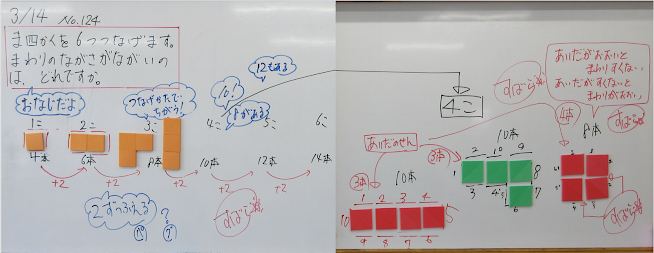 3/14 No.124
ま四かくを6つつなげます。
まわりのながさがながいの
は、どれですか。
おなじだよ
つなげかたで
ちがう!
10!
8がある!
12もある
1こ 2こ 3こ 4こ 5こ 6こ
4本 6本 8本 10本 12本 14本
+2 +2 +2 +2 +2
2ずつふえる
?
4こ
すばら
あいだがおおいと
まわりすくない
あいだがすくないと
まわりがおおい
すばら
あいだのせん
3本
10本
1 2 3 4
10 5
9 8 7 6
3本
10本
2 10 9
1 8
3 4 5 7
6
4本
8本
すばら